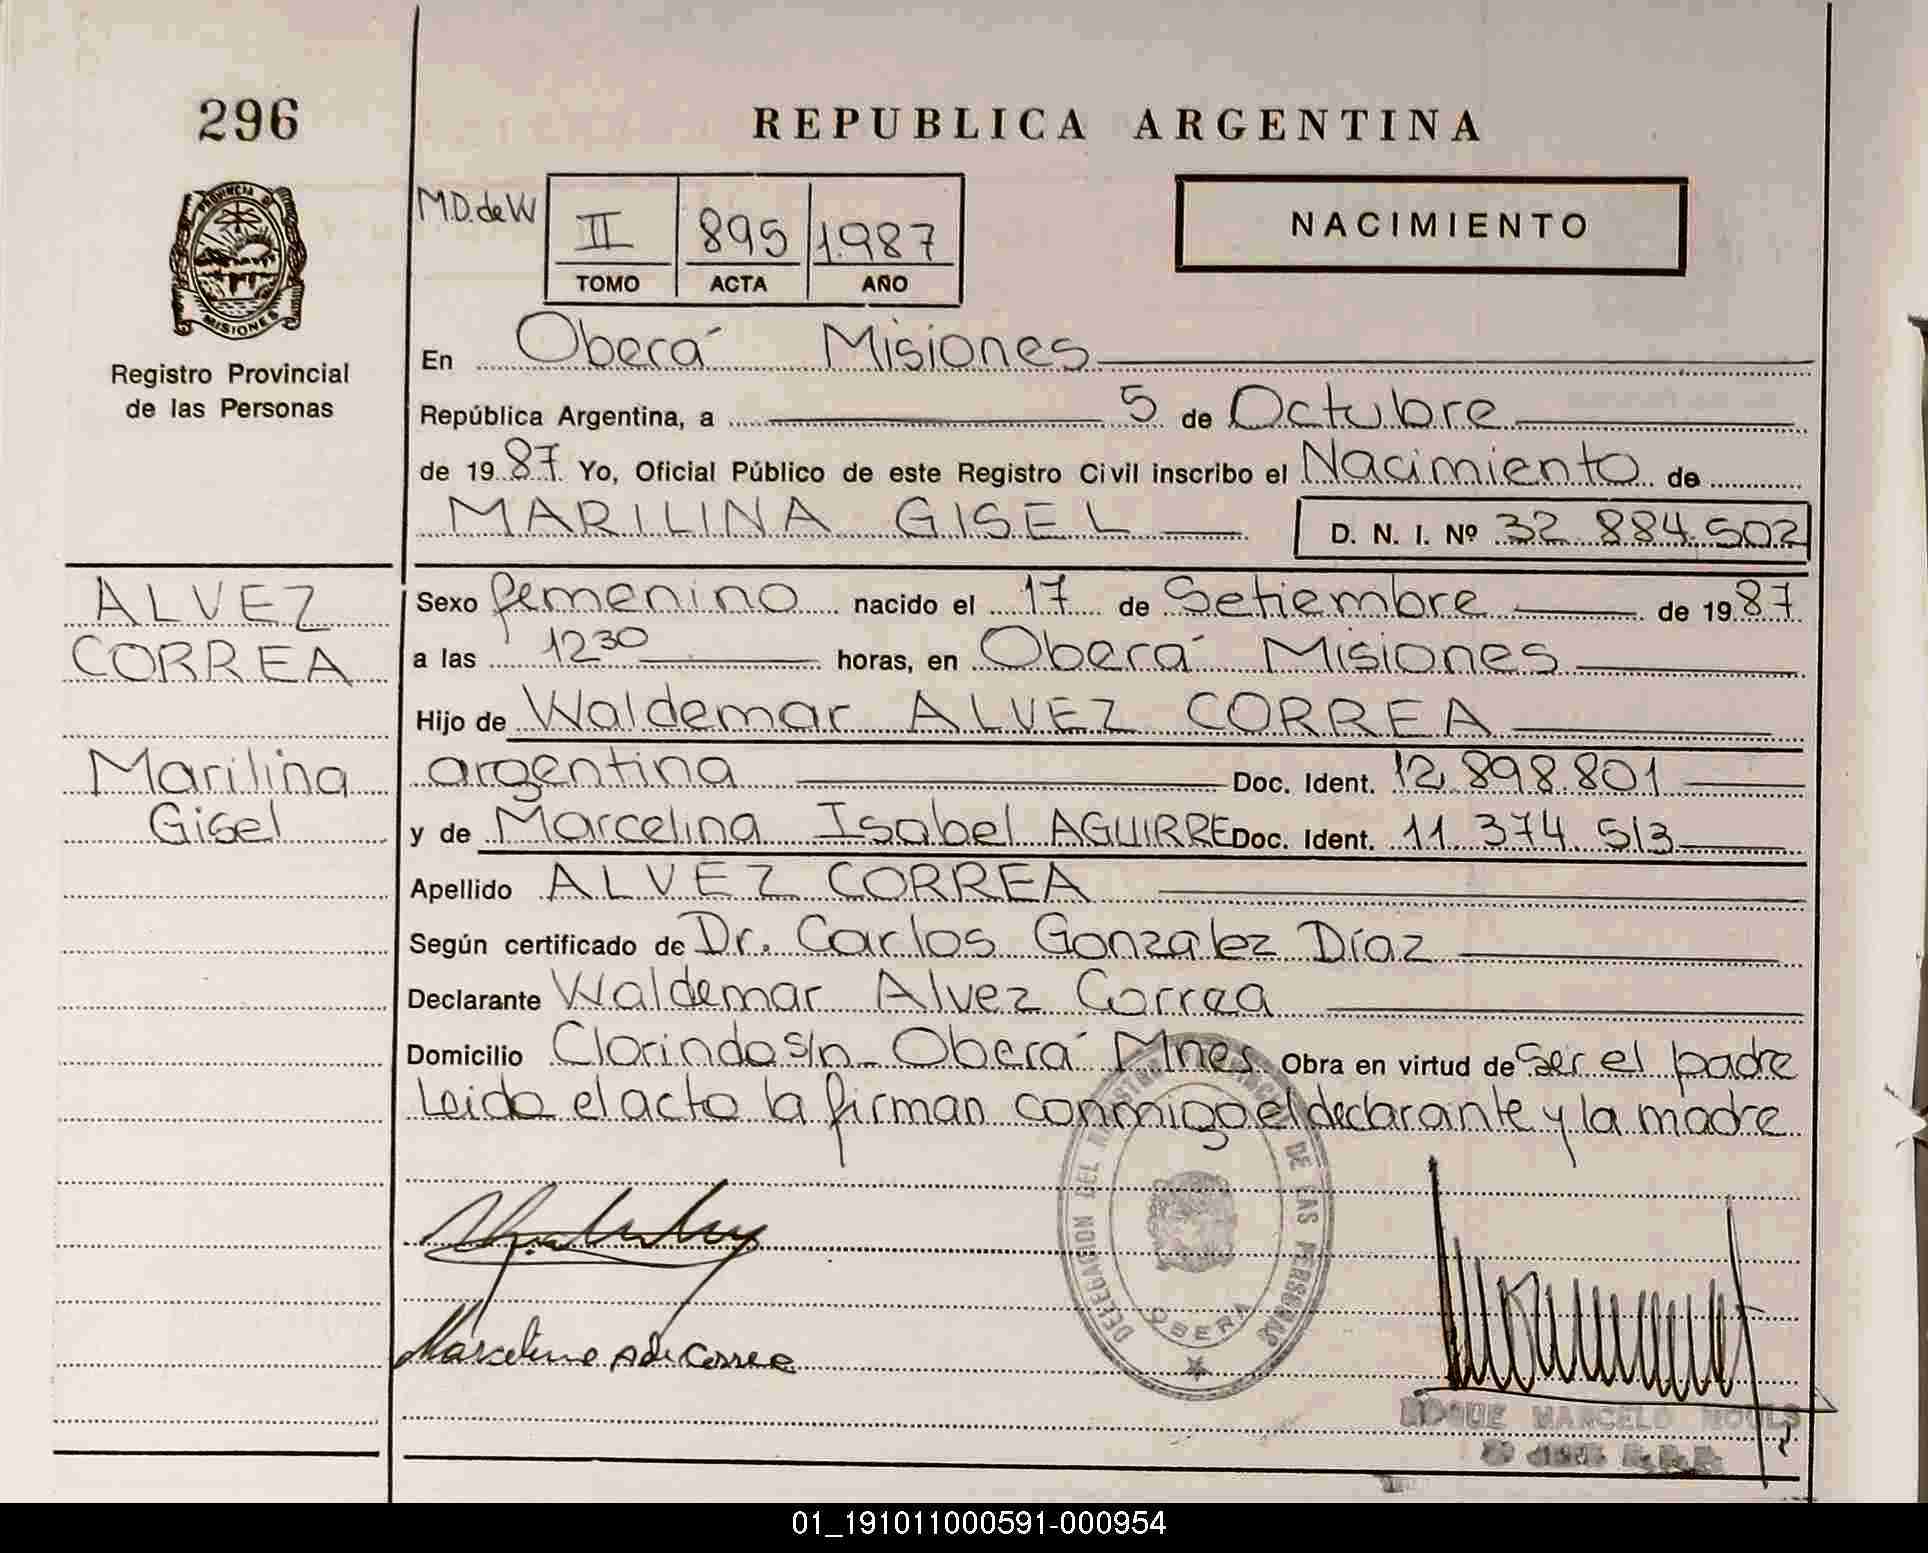 296
REPUBLICA ARGENTINA
PROVINCIA DE
MISIONES
Registro Provincial
de las Personas
M.D. de W
II 895 1.987
TOMO ACTA AÑO
NACIMIENTO
En Oberá Misiones
República Argentina, a 5 de Octubre
de 19 87 Yo, Oficial Público de este Registro Civil inscribo el Nacimiento de
MARILINA GISEL D. N. I. Nº 32.884.502
ALVEZ
CORREA
Marilina
Gisel
Sexo femenino nacido el 17 de Setiembre de 19 87
a las 12 30 horas, en Oberá Misiones
Hijo de Waldemar ALVEZ CORREA
argentina Doc. Ident. 12.898.801
y de Marcelina Isabel AGUIRRE Doc. Ident. 11.374.513
Apellido ALVEZ CORREA
Según certificado de Dr. Carlos Gonzalez Díaz
Declarante Waldemar Alvez Correa
Domicilio Clorinda s/n - Oberá Mnes Obra en virtud de ser el padre
Leido el acto la firman conmigo el declarante y la madre
DELEGACION DEL REGISTRO PROVINCIAL DE LAS PERSONAS
OBERA
Marcelina A de Correa
ROQUE MARCELO
01_191011000591-000954